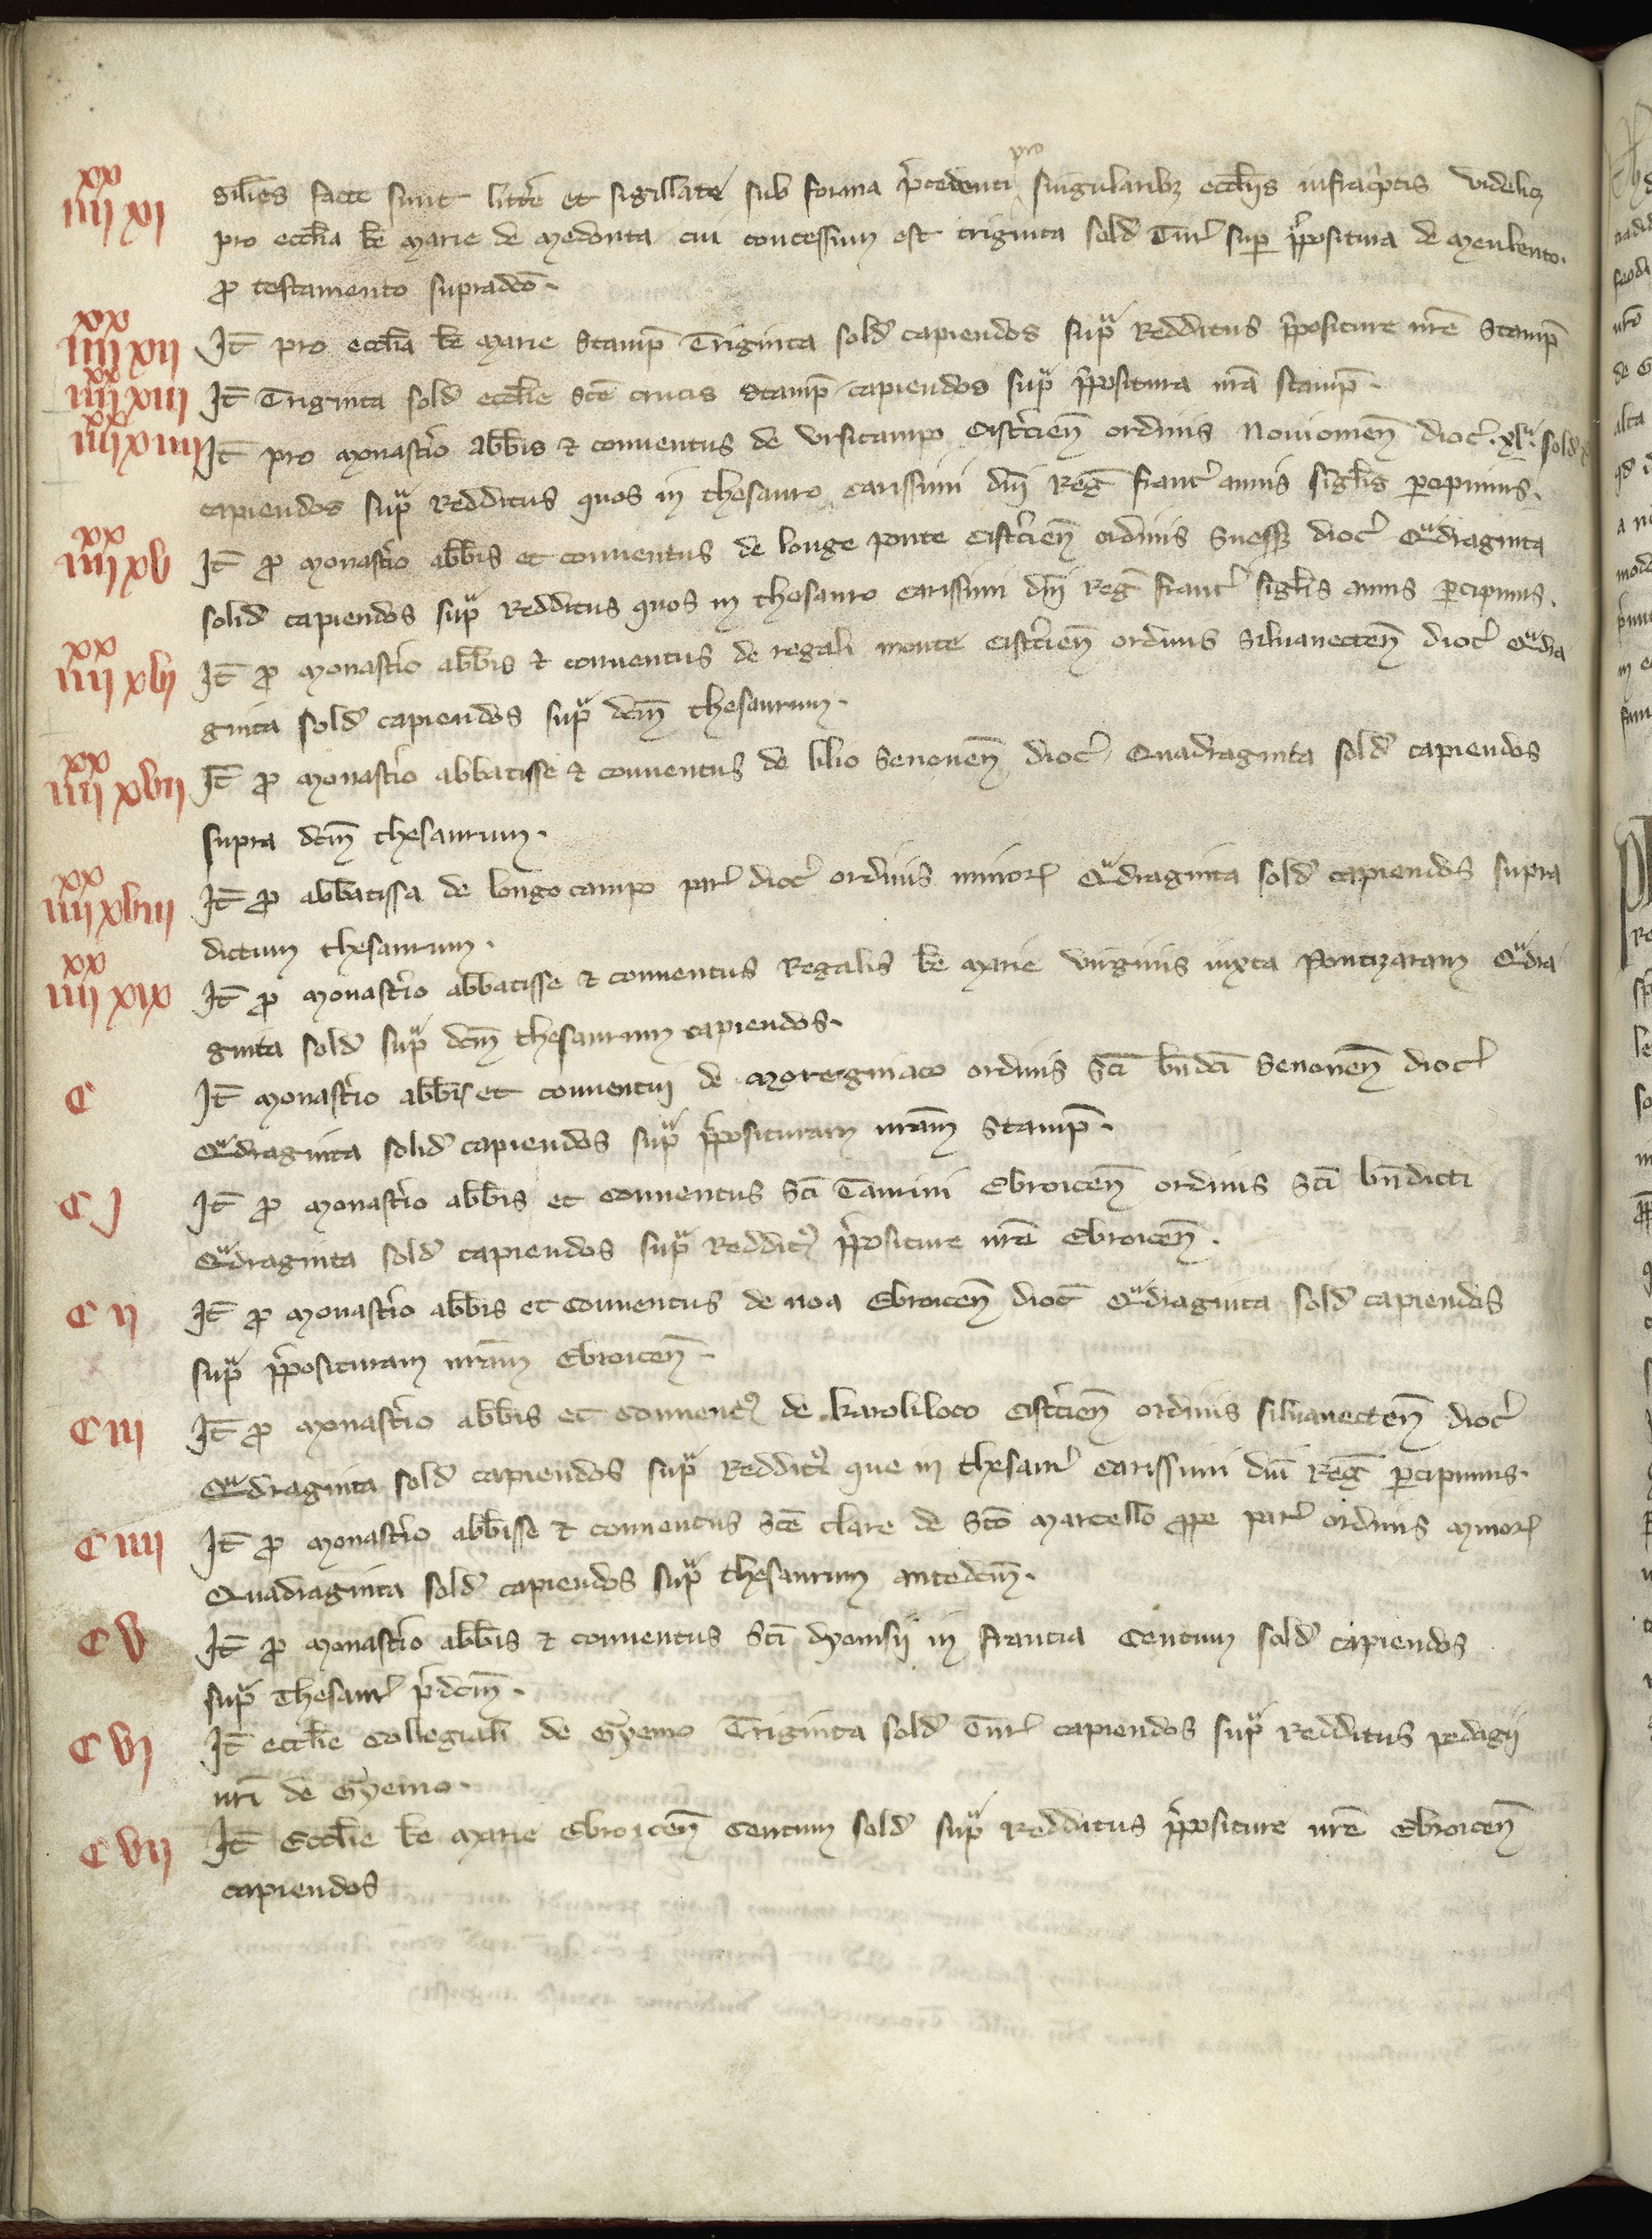 iiii xx xi Sil̄es facte sunt litt̄e et sigillate sub forma p̄cedenti pro singularibȝ eccl̄iis infrasc̄ptis videlicȝ
pro eccl̄ia b̄e marie de medonta cui concessum est triginta sold̄ Tur̄ sup p̄positura de meullento.
ꝓ testamento supradc̄o.
iiii xx xii It̄ pro eccl̄ia b̄e marie Stamp̄ Triginta sold̄ capiendos supᵃ Redditus p̄positure nr̄e Stamp̄
iiii xx xiii It̄ Triginta sold̄ eccl̄ie Sc̄e crucis Stamp̄ capiendos supᵃ p̄positura nr̄a stamp̄.
iiii xx xiiii It̄ pro monast̄io abb̄is ⁊ conuentus de vrsicampo Cist̄cien̄ ordinis Nouiomen̄ dioc̄. xlᵃ. sold̄
capiendos supᵃ Redditus quos in thesauro carissimi dn̄i Reḡ franc̄ annis sigl̄is ꝑcipimus.
iiii xx xv It̄ ꝓ monast̄io abb̄is et conuentus de longe ponte Cist̄cien̄ ordinis Suess̄ dioc̄ Qᵃdraginta
solid̄ capiendos supᵃ Redditus quos in thesauro carissimi dn̄i Reḡ franc̄ sigl̄is annis ꝑcipimus.
iiii xx xvi It̄ ꝓ monast̄io abb̄is ⁊ conuentus de regali monte Cist̄cien̄ ordinis Siluanecten̄ dioc̄ Qᵃdra
ginta sold̄ capiendos supᵃ dc̄m̄ thesaurum.
iiii xx xvii It̄ ꝓ monast̄io abbatisse ⁊ conuentus de lilio Senonen̄ dioc̄ Quadraginta sold̄ capiendos
supra dc̄m̄ thesaurum.
iiii xx xviii It̄ ꝓ abbatissa de longo campo par̄ dioc̄ ordinis minoꝝ Qᵃdraginta sold̄ capiendos supra
dictum thesaurum.
iiii xx xix It̄ ꝓ monast̄io abbatisse ⁊ conuentus Regalis b̄e marie virginis iuxta Pontizaram Qᵃdra
ginta sold̄ supᵃ dc̄m̄ thesaurum capiendos.
C It̄ monast̄io abb̄is et conuentui de moregniaco ordinis Sc̄i bn̄dc̄i Senonen̄ dioc̄
Qᵃdraginta solid̄ capiendos supᵃ p̄posituram nr̄am Stamp̄.
C j It̄ ꝓ monast̄io abb̄is et conuentus Sc̄i Taurini Ebroicen̄ ordinis Sc̄i bn̄dicti
Qᵃdraginta sold̄ capiendos supᵃ Reddit᷒ p̄positure nr̄e Ebroicen̄.
C ii It̄ ꝓ monast̄io abb̄is et conuentus de noa Ebroicen̄ dioc̄ Qᵃdraginta sold̄ capiendos
supᵃ p̄posituram nr̄am Ebroicen̄.
C iii It̄ ꝓ monast̄io abb̄is et conuent᷒ de karoliloco Cist̄cien̄ ordinis siluanecten̄ dioc̄
Qᵃdraginta sold̄ capiendos supᵃ Reddit᷒ que in thesaur̄ carissimi dn̄i Reḡ ꝑcipimus.
C iiii It̄ ꝓ monast̄io abb̄isse ⁊ conuentus Sc̄e clare de Sc̄o marcello ꝓpe par̄ ordinis minoꝝ
Quadraginta sold̄ capiendos supᵃ thesaurum antedc̄m̄.
C v It̄ ꝓ monast̄io abb̄is ⁊ conuentus Sc̄i dyonisij in francia Centum sold̄ capiendos
supᵃ Thesaur̄ p̄dc̄m̄.
C vi It̄ eccl̄ie Collegiali de Gyemo Triginta sold̄ Tur̄ capiendos supᵃ Redditus pedagij
nr̄i de Gyemo.
C vii It̄ Eccl̄ie b̄e marie Ebroicen̄ Centum sold̄ supᵃ Redditus p̄positure nr̄e Ebroicen̄
capiendos